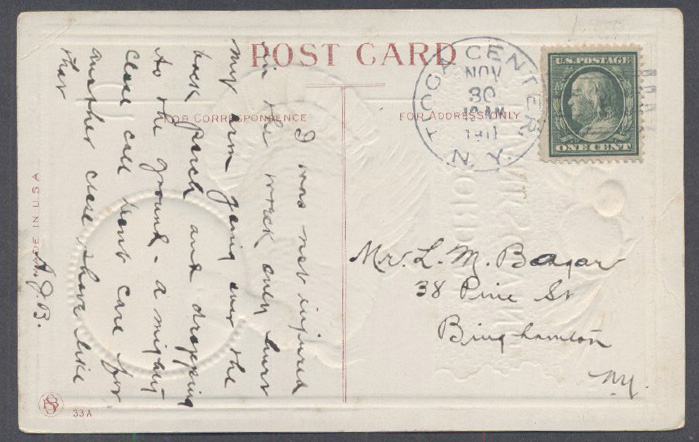 POST CARD
FOR CORRESPONDENCE
FOR ADDRESS ONLY
CENTER
NOV
30
1911
N.Y.
U.S. POSTAGE
ONE CENT
I was not injured
in the wreck only hurt
my arm going over the
back porch and dropping
to the ground - a mighty
close call dont care for
another close shave like
that
A.J.B.
Mr. L. M. Bogar
38 Pine St
Binghamton
N.Y.
MADE IN U.S.A
33A